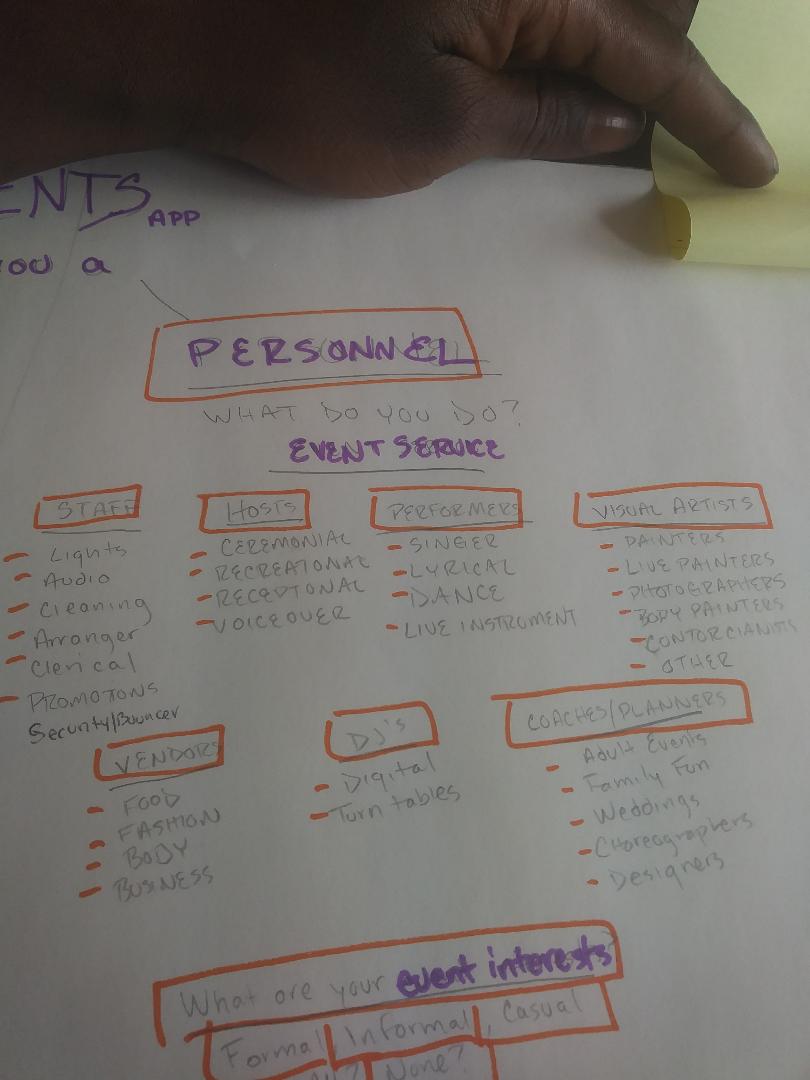 ENTS APP
you a
PERSONNEL
WHAT DO YOU DO?
EVENT SERVICE
STAFF
- Lights
- Audio
- Cleaning
- Arranger
- Clerical
- PROMOTIONS
Security/Bouncer
HOSTS
- CEREMONIAL
- RECREATIONAL
- RECEPTONAL
- VOICEOVER
PERFORMERS
- SINGER
- LYRICAL
- DANCE
- LIVE INSTROMENT
VISUAL ARTISTS
- PAINTERS
- LIVE PAINTERS
- PHOTOGRAPHERS
- BODY PAINTERS
- CONTORCIANISTS
- OTHER
VENDORS
- FOOD
- FASHION
- BODY
- BUSINESS
DJ's
- Digital
- Turn tables
COACHES/PLANNERS
- Adult Events
- Family Fun
- Weddings
- Choreographers
- Designers
What are your event interests
Formal, Informal, Casual
None?